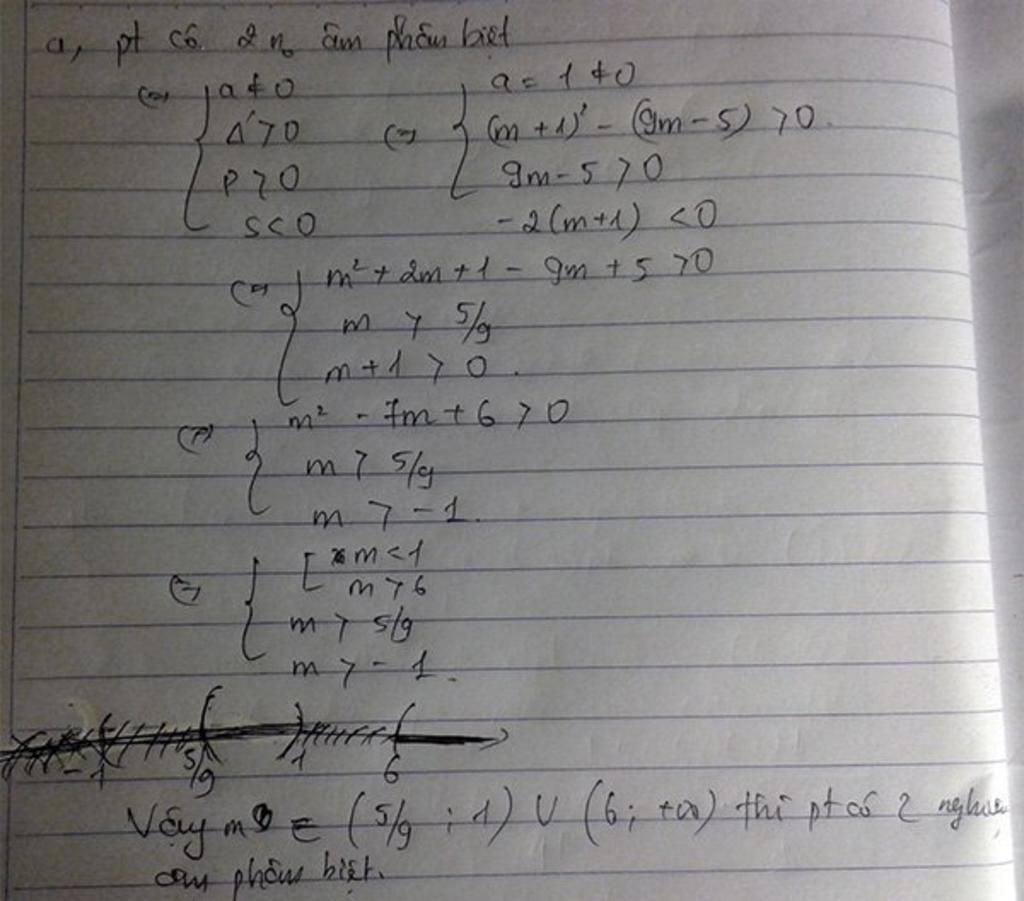 a, pt có 2 no âm phân biệt
<=> { a ≠ 0 <=> { a = 1 ≠ 0
Δ' > 0 (m + 1)² - (9m - 5) > 0.
P > 0 9m - 5 > 0
S < 0 -2(m+1) < 0
<=> { m² + 2m + 1 - 9m + 5 > 0
m > 5/9
m + 1 > 0.
<=> { m² - 7m + 6 > 0
m > 5/9
m > -1.
<=> { [ m < 1
m > 6
m > 5/9
m > -1.
-1 5/9 1 6
Vậy m ∈ (5/9 ; 1) ∪ (6; +∞) thì pt có 2 nghiệm
âm phân biệt.